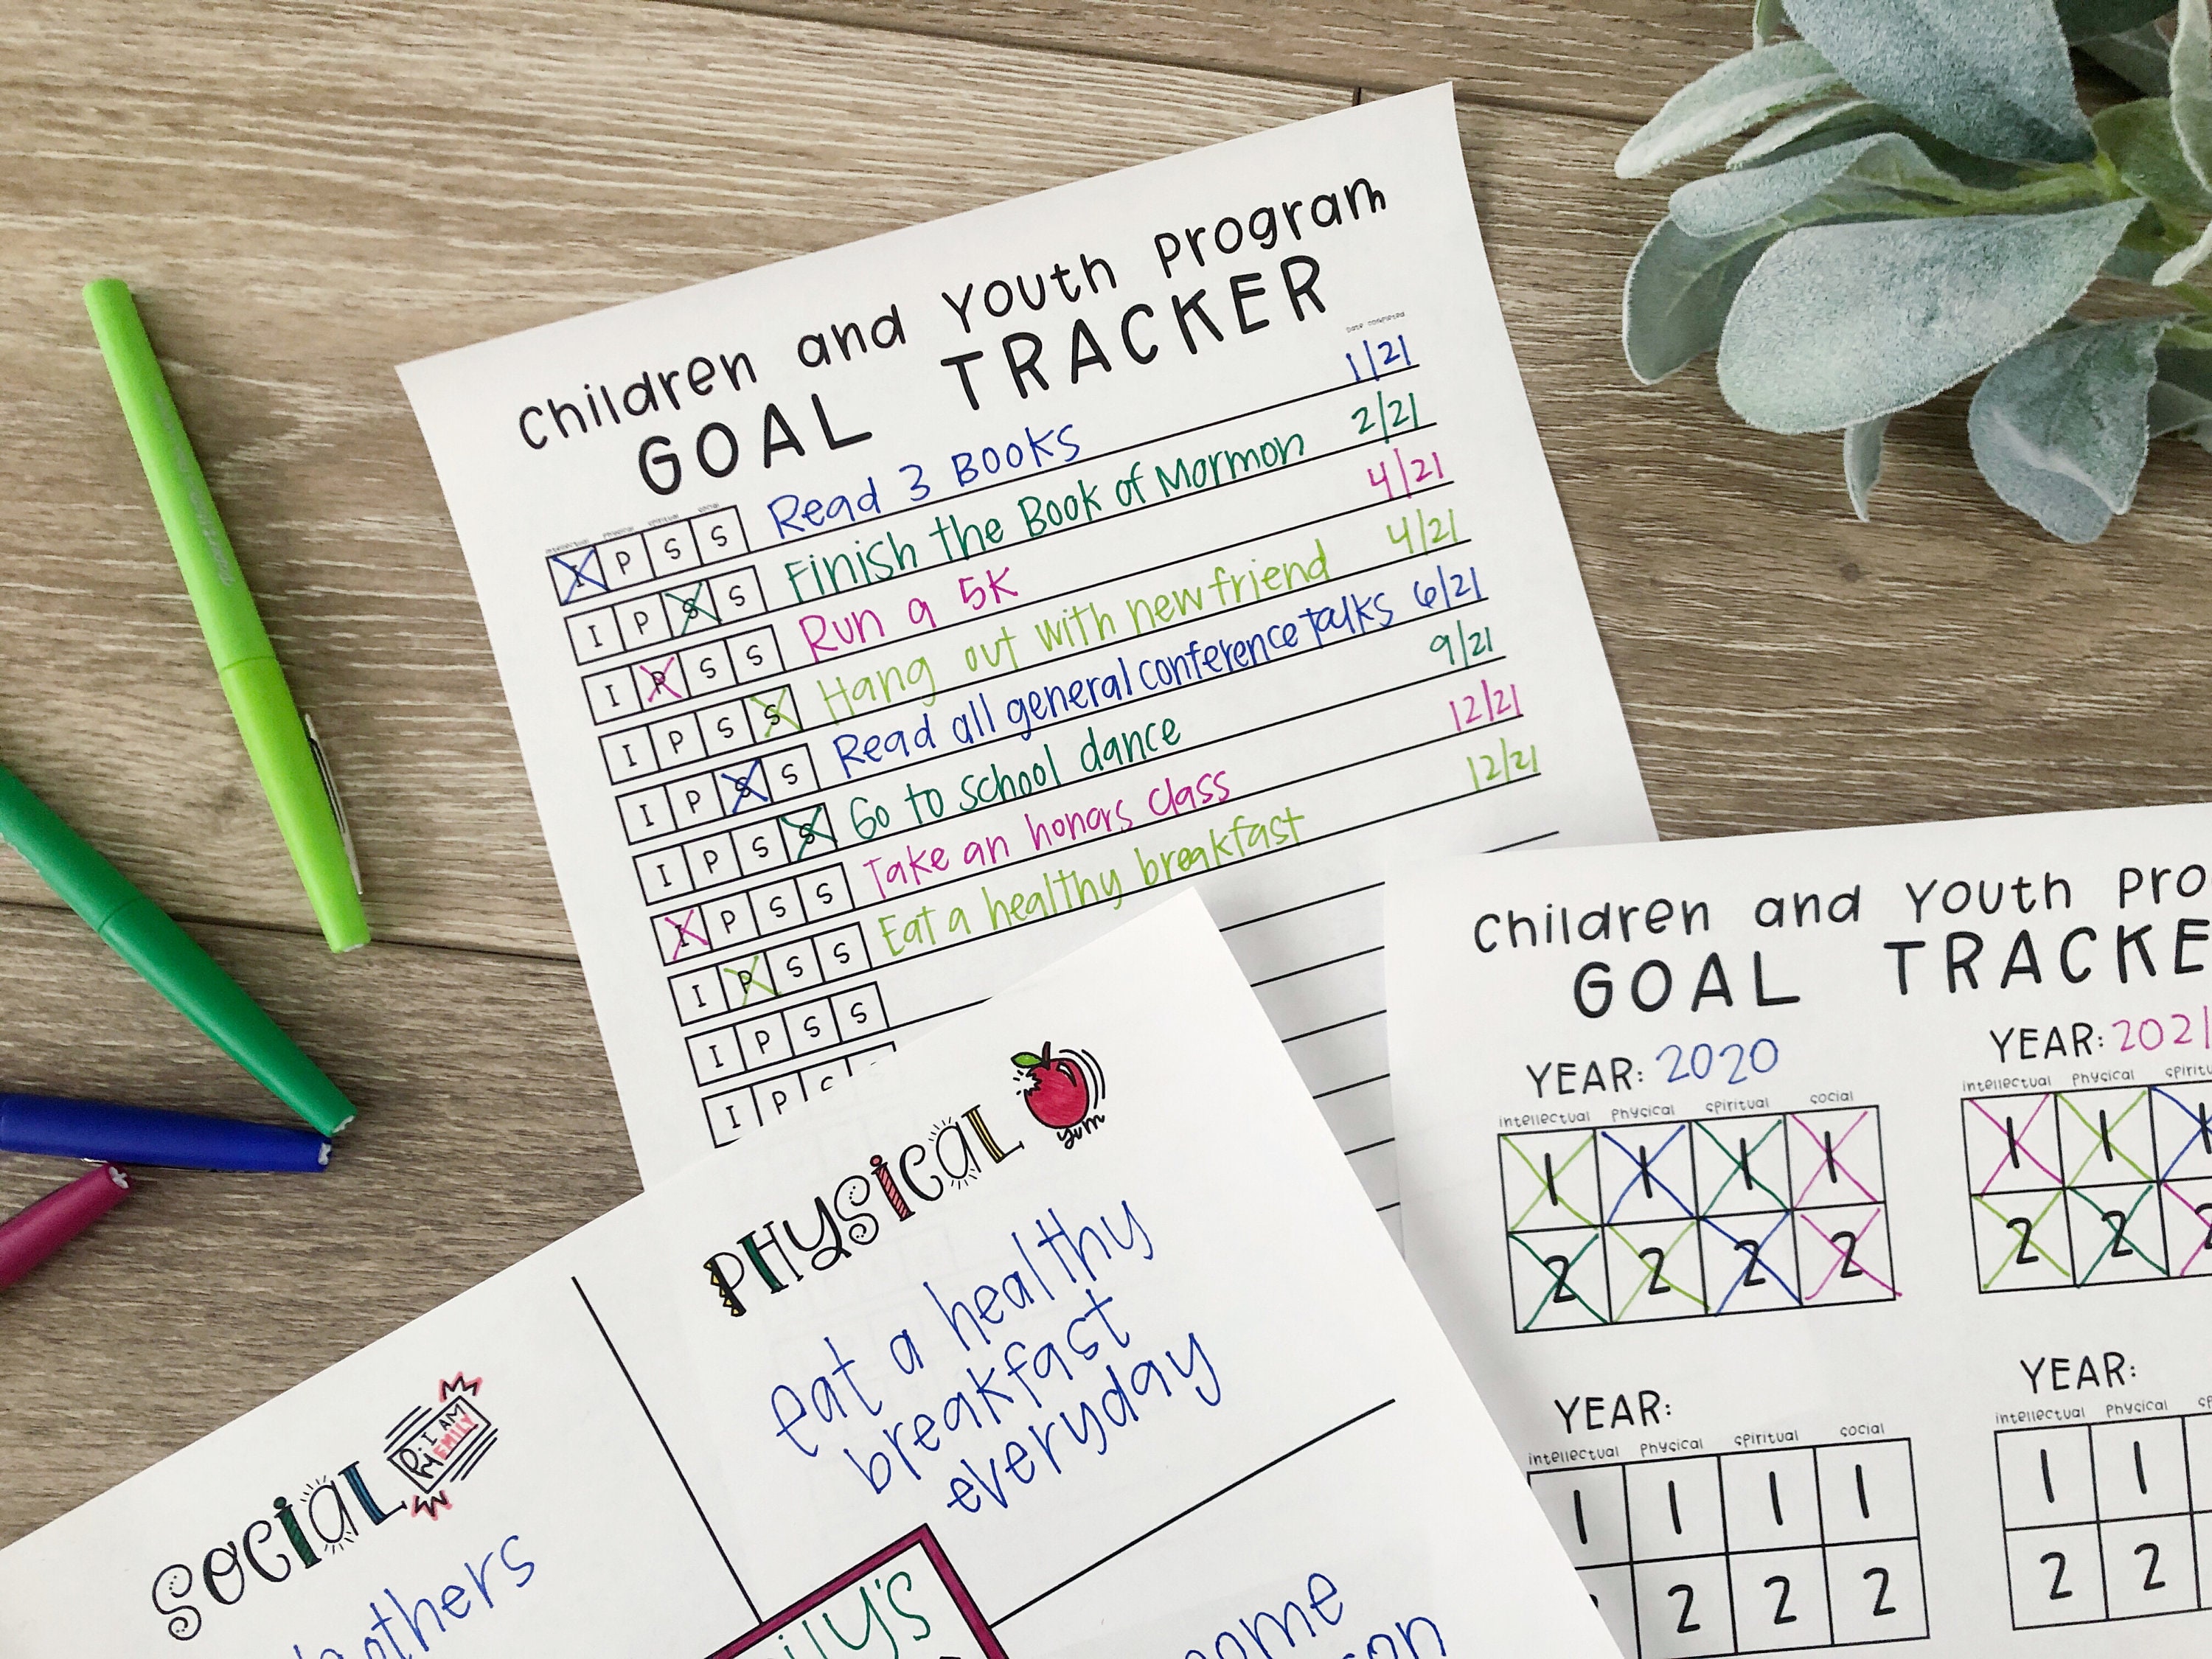 Children and Youth Program
GOAL TRACKER
Date completed
intellectual physical spiritual social
I P S S Read 3 BOOKS 1/21
I P S S Finish the Book of Mormon 2/21
I P S S Run a 5K 4/21
I P S S Hang out with new friend 4/21
I P S S Read all general conference talks 6/21
I P S S Go to school dance 9/21
I P S S Take an honors class 12/21
I P S S Eat a healthy breakfast 12/21
I P S S
I P
PHYSICAL
yum
eat a healthy
breakfast
everyday
SOCIAL
Hi I AM
EMILY
others
Children and Youth Pro
GOAL TRACKE
YEAR: 2020
intellectual physical spiritual social
1 1 1 1
2 2 2 2
YEAR: 2021
intellectual physical spiritu
1 1 1
2 2 2
YEAR:
intellectual physical spiritual social
1 1 1 1
2 2 2
YEAR:
intellectual physical sp
1 1
2 2